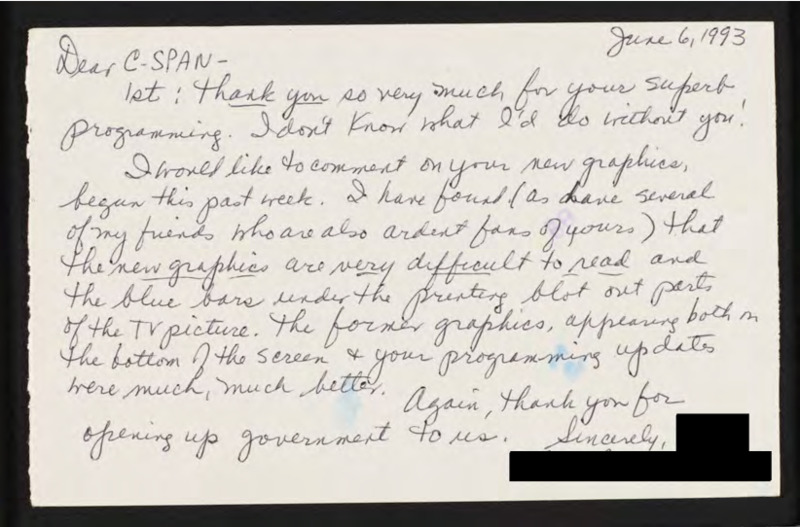 June 6, 1993
Dear C-SPAN-
1st: thank you so very much for your superb
programming. I don't know what I'd do without you!
I would like to comment on your new graphics,
begun this past week. I have found (as have several
of my friends who are also ardent fans of yours) that
the new graphics are very difficult to read and
the blue bars under the printing blot out parts
of the TV picture. The former graphics, appearing both on
the bottom of the screen & your programming updates
were much, much better.
Again, thank you for
opening up government to us. Sincerely,